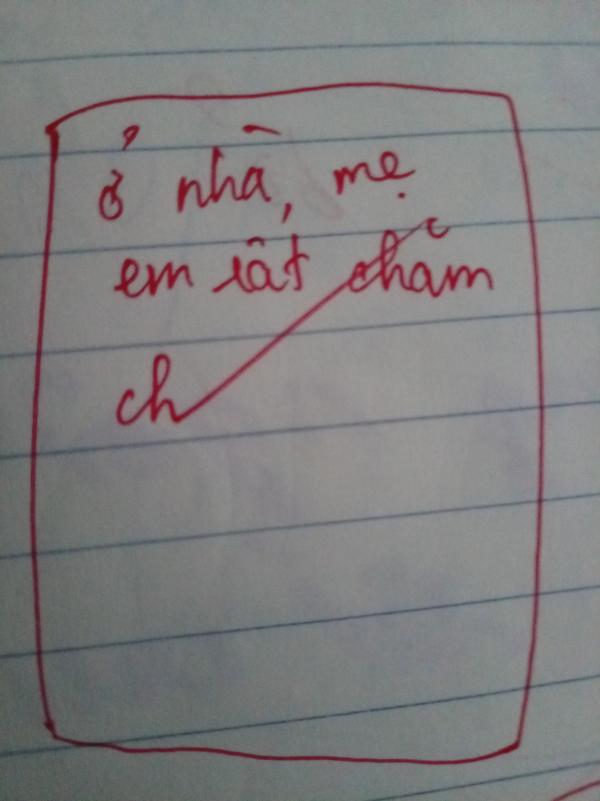 ở nhà, mẹ
em rất chăm
ch